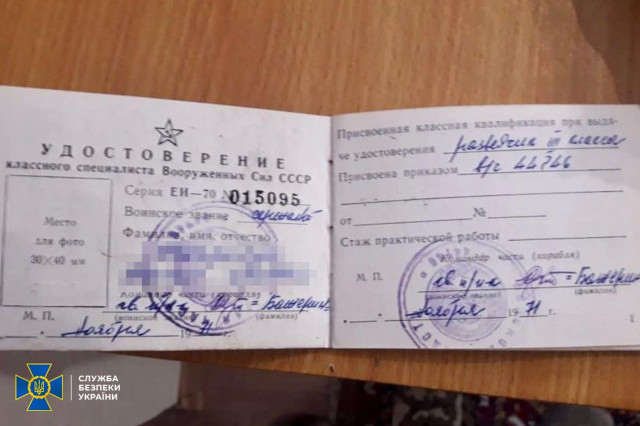 УДОСТОВЕРЕНИЕ
классного специалиста Вооруженных Сил СССР
Серия ЕН—70 № 015095
Воинское звание
Фамилия, имя, отчество
Место
для фото
30×40 мм
части (корабля)
(воинское звание) (фамилия)
М. П.
ноября 1971 г.
Присвоенная классная квалификация при выда-
че удостоверения разведчик III класса
Присвоена приказом в/ч 44746
от №
Стаж практической работы
Командир части (корабля)
М. П.
(воинское звание) (фамилия)
ноября 1971 г.
1
СЛУЖБА
БЕЗПЕКИ
УКРАЇНИ